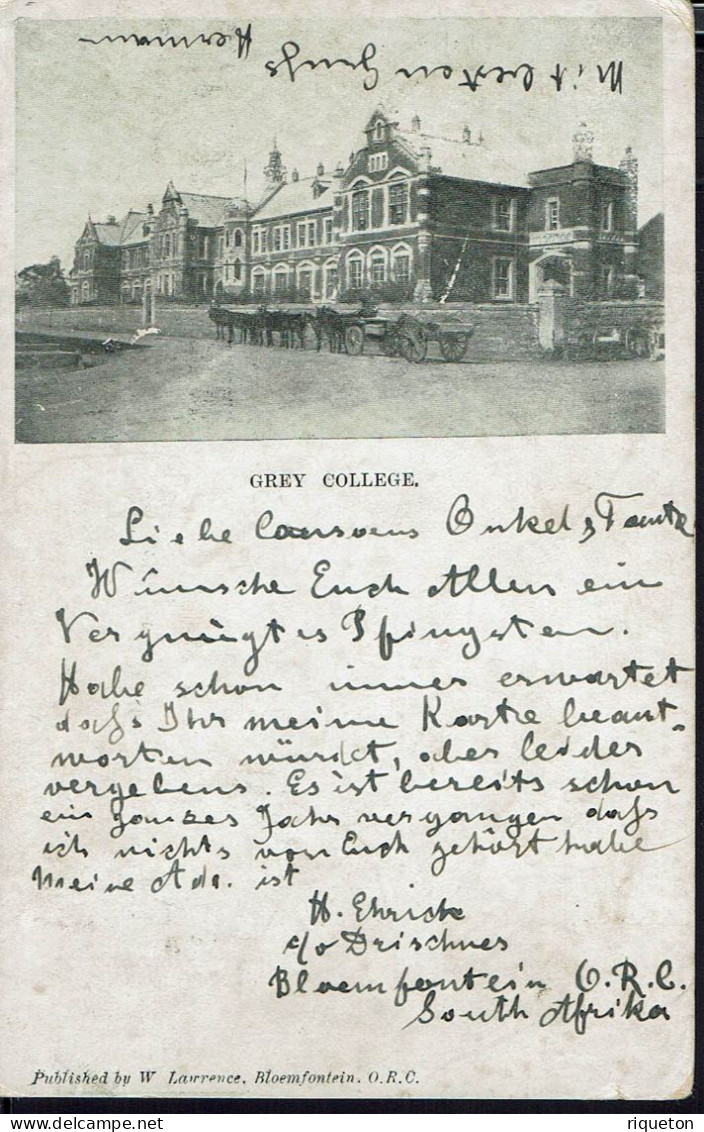 Mit besten Gruss
Hermann
GREY COLLEGE.
Liebe Onkel, Tante
Wünsche Euch Allen ein
Vergnügtes Pfingsten.
Habe schon immer erwartet
dass Ihr meine Karte beant-
worten würdet, aber leider
vergebens. Es ist bereits schon
ein ganzes Jahr vergangen dass
ich nichts von Euch gehört habe
Meine Adr. ist
H. Ehrich
c/o
Bloemfontein O.R.C.
South Afrika
Published by W Lawrence, Bloemfontein. O.R.C.
riqueton